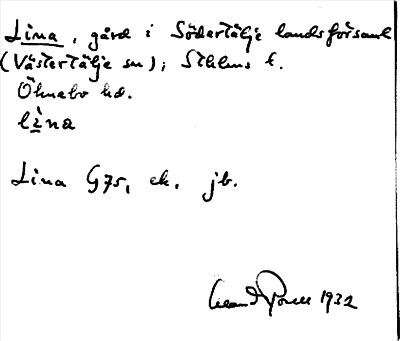 Lina, gård i Södertälje landsförsaml
(Västertälje sn); Sthlms l.
Öknebo hd.
lìna
Lina G75, ek. jb.
1932